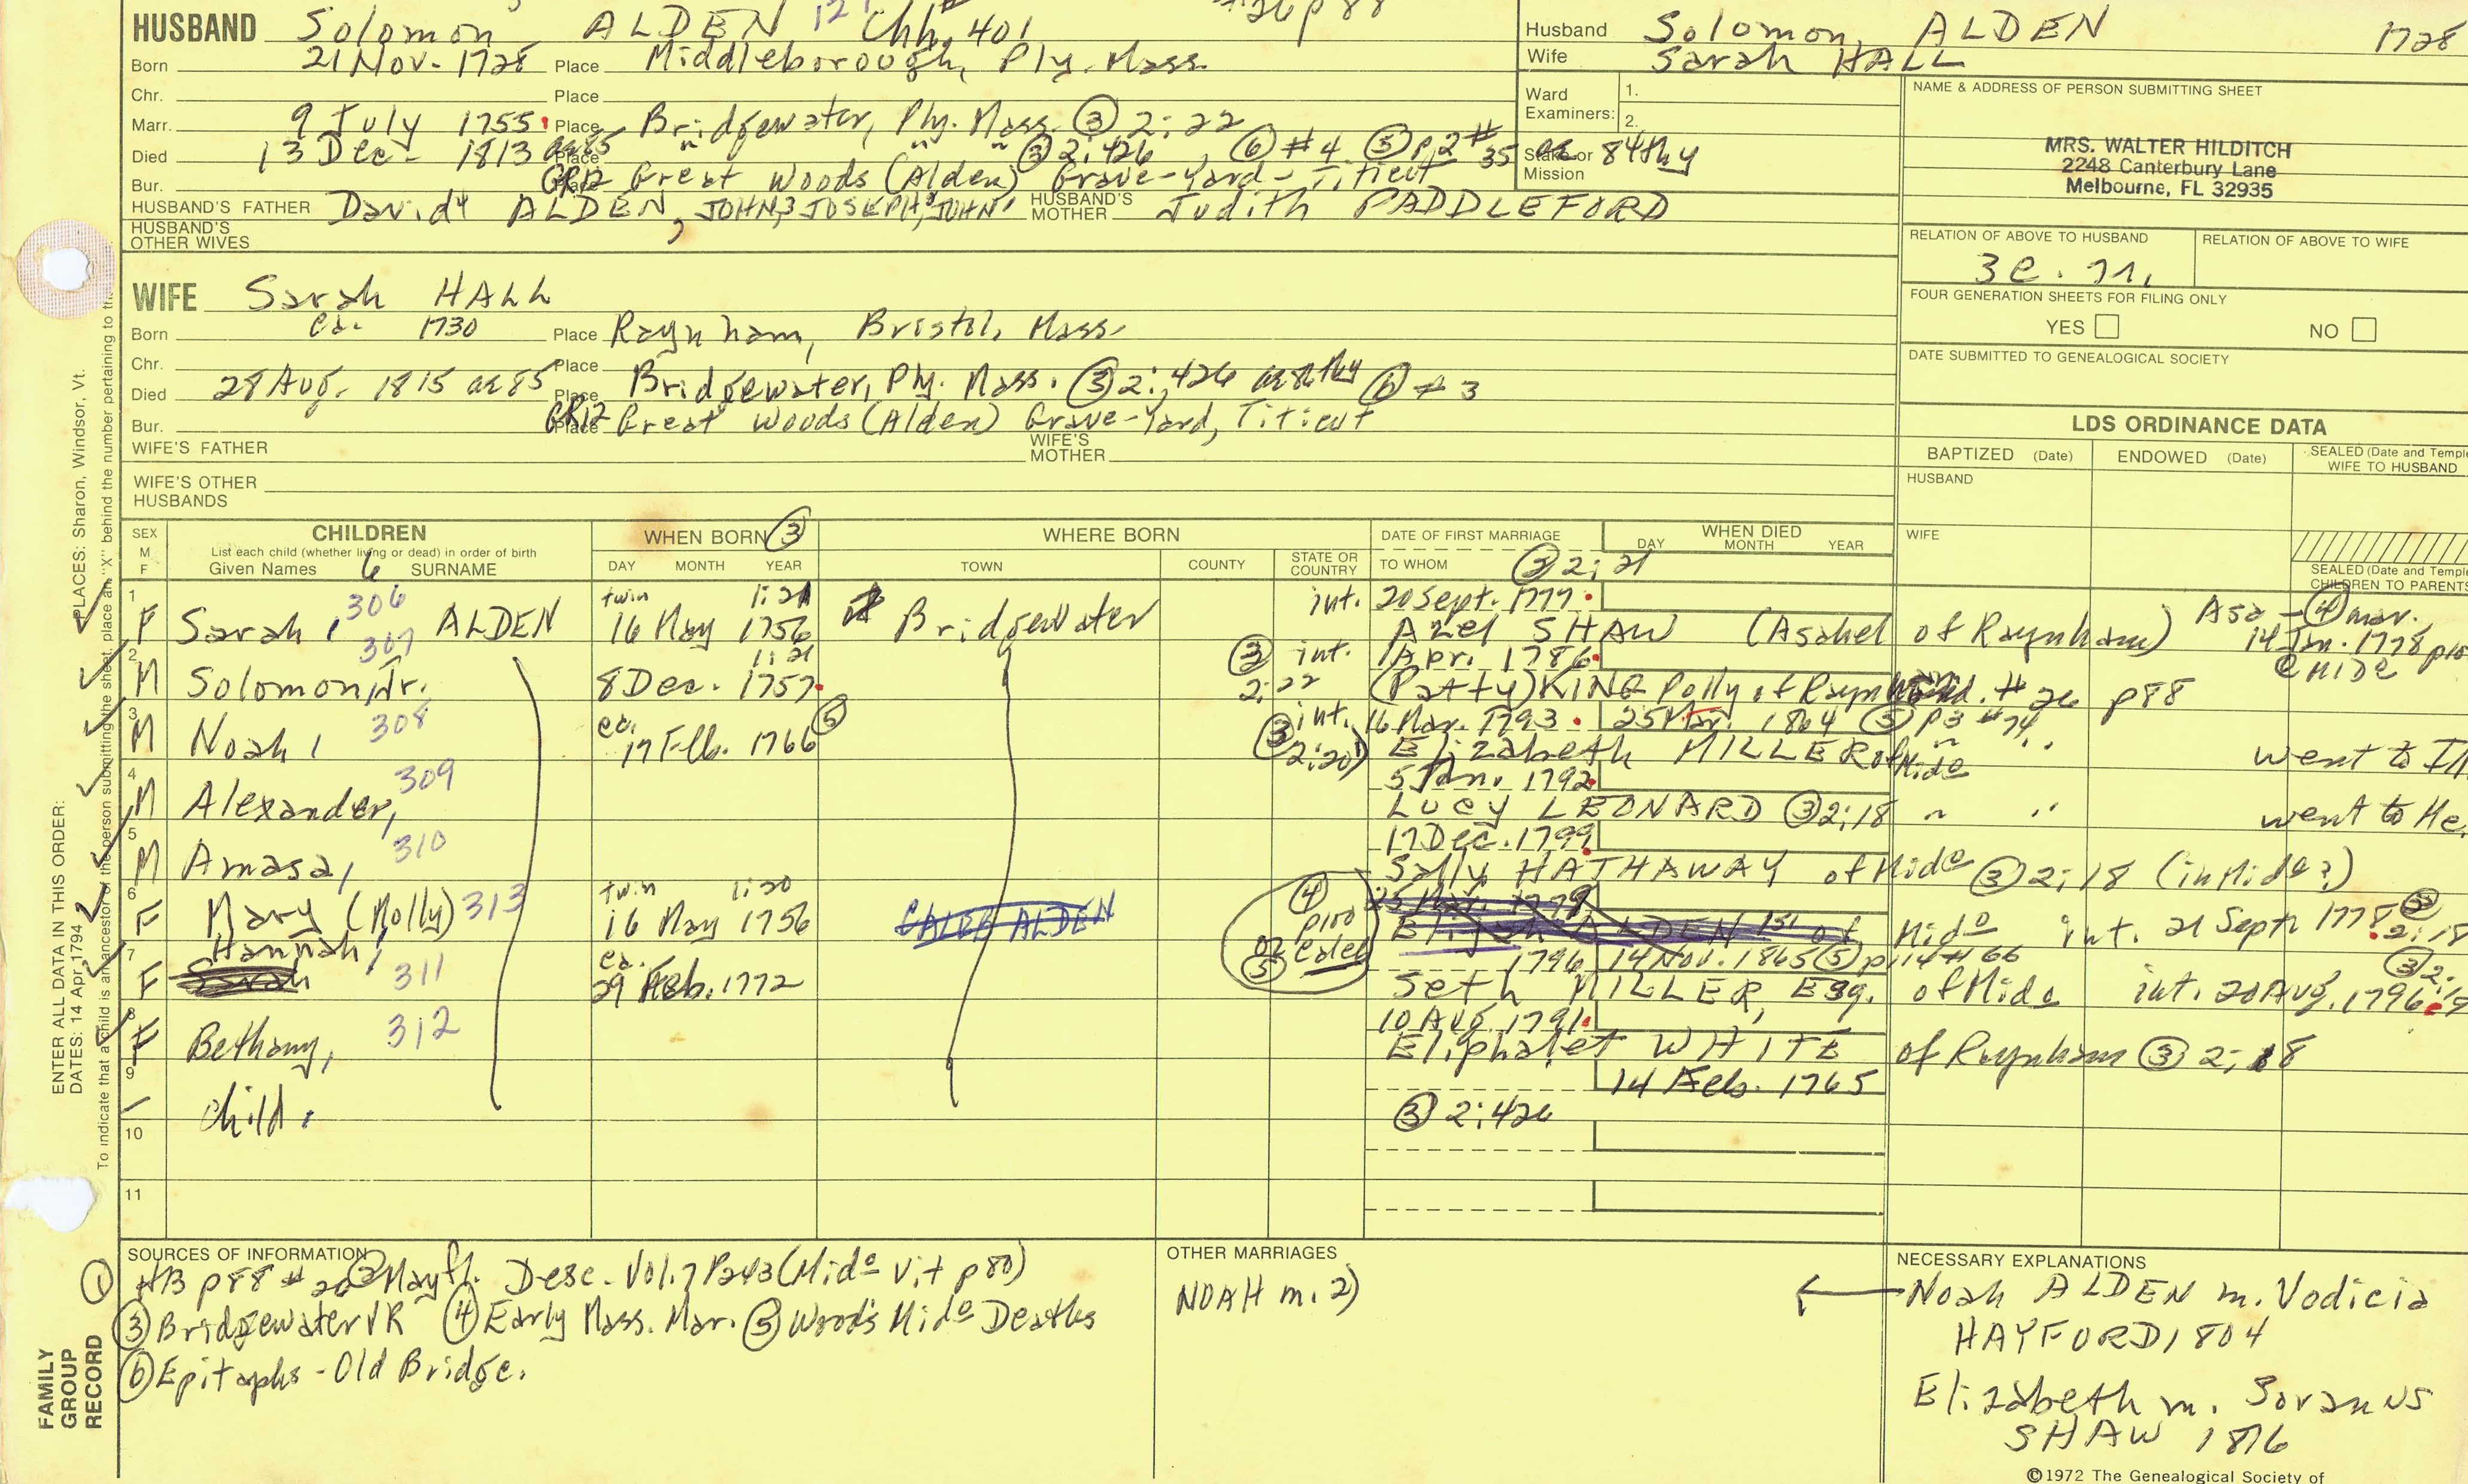 HUSBAND Solomon ALDEN 12 Chh. 401 #26 p 88
Born 21 Nov. 1728 Place Middleborough, Ply. Mass.
Chr. Place
Marr. 9 July 1755 Place Bridgewater, Ply. Mass. ③ 2:22
Died 13 Dec. 1813 ae 85 Place " " " ③ 2:426, ⑥ #4 ⑤ p 2 #35 ae 84thy
Bur. GR12 Place Great Woods (Alden) Grave-Yard - Titicut
HUSBAND'S FATHER David4 ALDEN, JOHN3 JOSEPH2 JOHN1 HUSBAND'S MOTHER Judith PADDLEFORD
HUSBAND'S OTHER WIVES
Husband Solomon ALDEN 1728
Wife Sarah HALL
Ward Examiners: 1.
2.
Stake or Mission
NAME & ADDRESS OF PERSON SUBMITTING SHEET
MRS. WALTER HILDITCH
2248 Canterbury Lane
Melbourne, FL 32935
RELATION OF ABOVE TO HUSBAND RELATION OF ABOVE TO WIFE
FOUR GENERATION SHEETS FOR FILING ONLY
YES NO
DATE SUBMITTED TO GENEALOGICAL SOCIETY
WIFE Sarah HALL
Born ca. 1730 Place Raynham, Bristol, Mass.
Chr. Place
Died 28 Aug. 1815 ae 85 Place Bridgewater, Ply. Mass. ③ 2:426 ⑥ #3
Bur. GR12 Place Great Woods (Alden) Grave-Yard, Titicut
WIFE'S FATHER WIFE'S MOTHER
WIFE'S OTHER HUSBANDS
LDS ORDINANCE DATA
BAPTIZED (Date) ENDOWED (Date) SEALED (Date and Temple) WIFE TO HUSBAND
HUSBAND
WIFE
SEALED (Date and Temple) CHILDREN TO PARENTS
SEX M F CHILDREN WHEN BORN ③ WHERE BORN DATE OF FIRST MARRIAGE WHEN DIED
List each child (whether living or dead) in order of birth DAY MONTH YEAR
Given Names SURNAME DAY MONTH YEAR TOWN COUNTY STATE OR COUNTRY TO WHOM ③ 2:21
1 306 twin 1:21 int. 20 Sept. 1777
F Sarah, ALDEN 16 May 1756 Bridgewater Azel SHAW (Asahel of Raynham) Asa - ④ mar. 14 Jan. 1778 p100 @ Mido
2 307 1:21 ③ 2:22 int. 1 Apr. 1786
M Solomon, Jr. 8 Dec. 1757 (Patty) KING Polly of Raynham #26 p 88
3 308 ca. ⑤ ③ int. 16 Mar. 1793 25 Mar. 1864 ⑤ p3 #74
M Noah, 17 Feb. 1766 2:20) Elizabeth MILLER of Mido went to
4 309 5 Jan. 1792
M Alexander, Lucy LEONARD ③ 2:18 went to Me.
5 310 17 Dec. 1799
M Amasa, Sally HATHAWAY of Mido ③ 2:18 (in Mido?)
6 313 twin 1:20 ④ p100 25 Mar. 1779
F Mary (Molly) 16 May 1756 CALEB ALDEN Elijah ALDEN 1st of Mido int. 21 Sept 1778 ③ 2:18
7 Hannah, 311 ca. or Caleb ⑤ 1796 14 Nov. 1865 ⑤ p114 #66
F Sarah 29 Feb. 1772 Seth MILLER, Esq. of Mido int. 20 Aug. 1796 ③ 2:19
8 312 10 Aug. 1791
F Bethany, Eliphalet WHITE of Raynham ③ 2:18
9 14 Feb. 1765
child. ③ 2:426
10
11
SOURCES OF INFORMATION
① HB p 88 #26 ② Mayfl. Desc. Vol. 7 P243 (Mido Vit p 80)
③ Bridgewater VR ④ Early Mass. Mar. ⑤ Wood's Mido Deaths
⑥ Epitaphs - Old Bridge.
OTHER MARRIAGES
NOAH m. 2)
NECESSARY EXPLANATIONS
Noah ALDEN m. Vodicia
HAYFORD 1804
Elizabeth m. Soranus
SHAW 1816
©1972 The Genealogical Society of
FAMILY GROUP RECORD
ENTER ALL DATA IN THIS ORDER:
DATES: 14 Apr 1794 PLACES: Sharon, Windsor, Vt.
To indicate that a child is an ancestor of the person submitting the sheet, place an "X" behind the number pertaining to